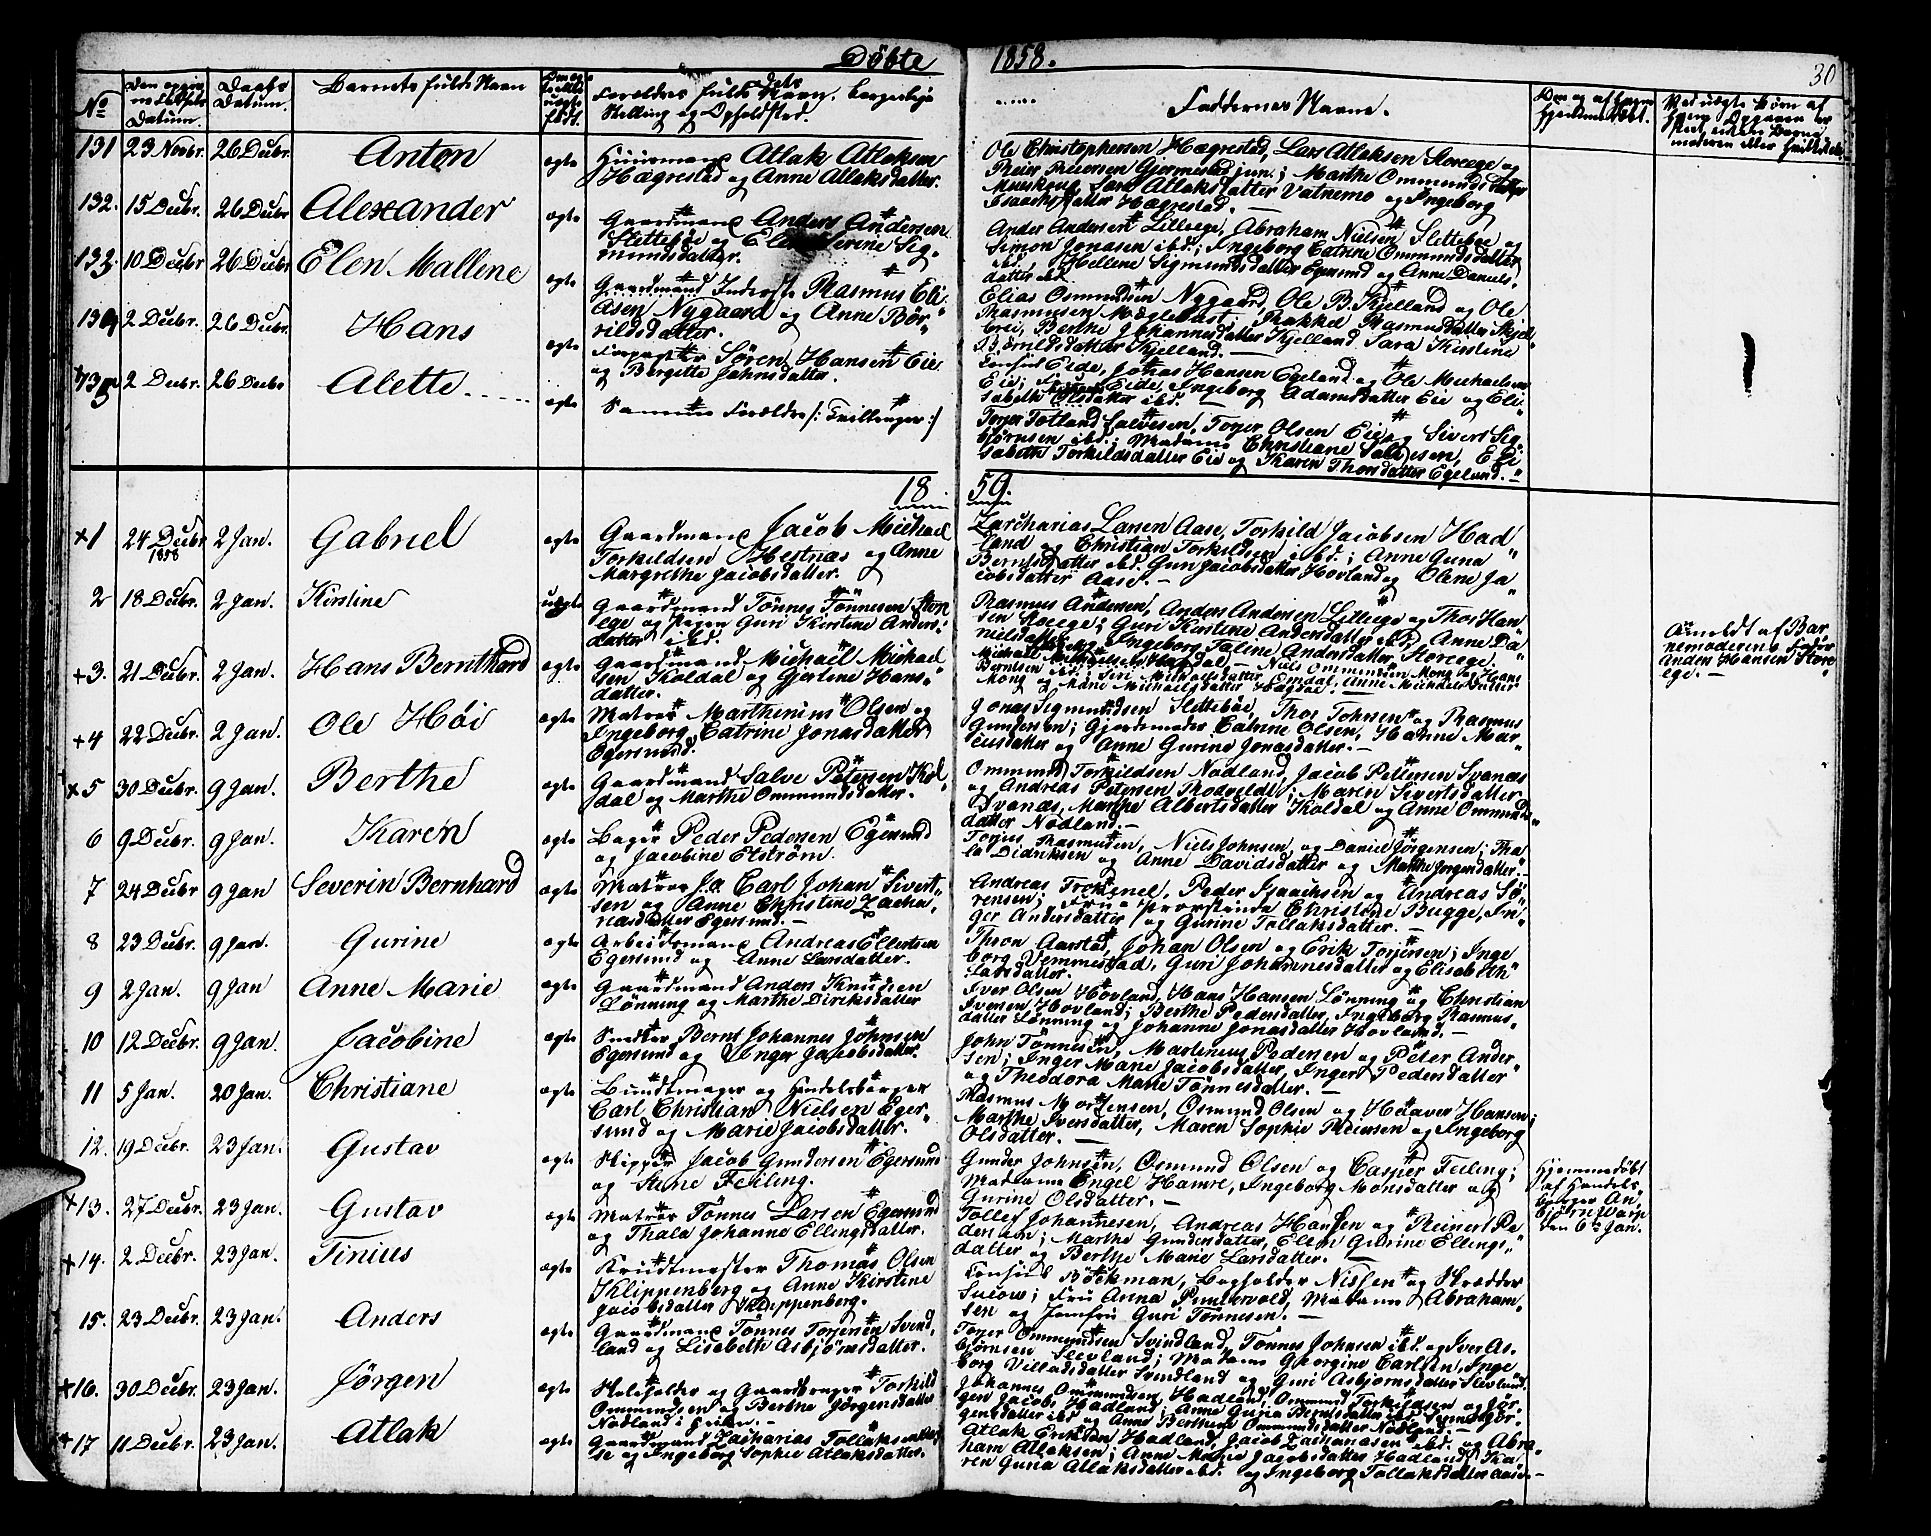 Døbte 1858.
30
No
Datum.
Daabs Datum.
Barnets fulde Navn
Forældres fulde Navn,
Stilling og Opholdssted.
Faddernes Navne.
131 23 Novbr. 26 Decbr. Anton ægte Huusmand Atlak Atlaksen
Hægrestad og Anne Atlaksdatter.
Ole Christophersen Hægrestad, Lars Atlaksen Storeege og
Reier Reiersen Gjermestad jun.; Marthe Ommundsdatter
Isaachsdatter Hægrestad.
132. 15 Decbr. 26 Decbr Alexander ægte Gaardmand Anders Andersen
Slettebøe og Elen Serine Sig-
mundsdatter.
Ander Andersen Lilleege, Abraham Nielsen Slettebøe og
Simon Jonasen ibd.; Ingeborg Catrine Ommundsdatter
ibd., Hellene Sigmundsdatter Egersund og Anne Daniels-
datter ibd.
133. 10 Decbr 26 Decbr Elen Mallene ægte Gaardmand Inderste Rasmus Eli-
Elsen Nygaard og Anne Bør-
rildsdatter.
Elias Osmundsen Nygaard, Ole B. Kjelland og Ole
Rasmusen Mæglebust; Rakkel Rasmusdatter Skjel-
brei, Berthe Johannesdatter Kjelland Sara Kirstine
Børrildsdatter Kjelland.
134 2 Decbr. 26 Decbr. Hans ægte Forpagter Søren Hansen Eie
og Bergitte Jahnsdatter.
Eide, Jonas Hansen Egeland og Ole Michaelsen
Eie; Eide, Ingeborg Adamsdatter Eie og Eli-
sabeth Olsdatter ibd.
135 2 Decbr. 26 Decbr Alette ægte Samme Forældre /: Tvillinger :/
Torger Olsen Eie og Sivert Sig-
bjørnsen ibd.; Madame Christiane Salvesen, Eli-
sabeth Torkildsdatter Eie og Karen Thorsdatter Egeland.
18 59.
+1 24 Decbr 1858 2 Jan. Gabriel ægte Gaardmand Jacob Michael
Torkildsen Hestnæs og Anne
Margrethe Jacobsdatter.
Zarcharias Larsen Aase, Torkild Jacobsen Had-
land og Christian Torkildsen ibd.; Anne Guna
Berntsdatter ibd. Guri Jacobsdatter Hovland og Olene Ja-
cobsdatter Aase.
2 18 Decbr. 2 Jan. Kirstine uægte Gaardmand Tønnes Tønnesen Store-
ege og Pigen Guri Kirstine Anders-
datter ibd.
Rasmus Andersen, Anders Andersen Lilleege og Thor Han-
sen Storeege; Guri Kirstine Andersdatter ibd, Anne Da-
nielsdatter og Ingeborg Taline Andersdatter Storeege.
Anmeldt af Bar-
nemoderens Fader
Anders Hansen Store-
ege.
+3. 21 Decbr. 2 Jan. Hans Bernthard ægte Gaardmand Michael Michael-
sen Koldal og Gjertine Hans-
datter.
+4 22 Decbr. 2 Jan. Ole Høi ægte Matros Marthinius Olsen og
Ingeborg Catrine Jonasdatter
Egersund.
Jonas Sigmundsen Slettebøe, Thor Tohnsen og Rasmus
Gundersen; Gjordemoder Catrine Olsen, Hanne Mar-
cusdatter og Anne Gurine Jonasdatter.
+5 30 Decbr. 9 Jan. Berthe ægte Gaardmand Salve Petersen Kol-
dal og Marthe Ommundsdatter.
Ommund Torkildsen Nodland, Jacob Pettersen Svanæs
og Andreas Petersen; Maren Sivertsdatter
Svanæs, Marthe Albertsdatter Koldal og Anne Ommunds-
datter Nodland.
6 9 Decbr. 9 Jan. Karen ægte Bager Peder Pedersen Egersund
og Jacobine Elstrøm.
Torjus Rasmusen, Niels Johnsen, og Daniel Jørgensen; Tha-
le Didriksen og Anne Davidsdatter og Marthe Jørgensdatter.
7 24 Decbr 9 Jan Severin Bernhard ægte Matros Carl Johan Sivert-
sen og Anne Christine Zacha-
riasdatter Egersund.
Andreas, Peder Isaachsen og Andreas Sø-
rensen; Christine Bugge, In-
ger Andersdatter og Gurine Tollaksdatter.
8 23 Decbr. 9 Jan. Gurine ægte Arbeidsmand Andreas Ellertsen
Egersund og Anne Larsdatter.
Thron Aarstad, Johan Olsen og Erik Torjersen; Inge-
borg Vemmestad, Guri Johannesdatter og Elisabeth
Larsdatter.
9 2 Jan. 9 Jan Anne Marie ægte Gaardmand Anders Knudsen
Lønning og Marthe Diriksdatter
Iver Olsen Hovland, Hans Hansen Lønning og Christian
Iversen Hovland; Berthe Pedersdatter, Ingeborg Rasmus-
datter Lønning og Johanne Jonasdatter Hovland.
10 12 Decbr. 9 Jan. Jacobine ægte Berent Johannes Johnsen
Egersund og Inger Jacobsdatter.
John Tønnesen, Martinius Pedersen og Peter Ander-
sen; Inger Marie Jacobsdatter, Inger Pedersdatter
og Theodora Marie Tønnesdatter.
11 5 Jan. 20 Jan. Christiane ægte Bundtmager og Handelsborger
Carl Christian Nielsen Eger-
sund og Marie Jacobsdatter.
Rasmus Mortensen, Osmund Olsen og Helaver Hansen;
Marthe Iversdatter, Maren Sophie Reiersen og Ingeborg
Olsdatter.
12. 19 Decbr. 23 Jan. Gustav ægte Skipper Jacob Gundersen Egersund
og Stine Feiling.
Gunder Johnsen, Osmund Olsen og Casper Feiling;
Madame Engel Hamre, Ingeborg Monsdatter og
Gurine Olsdatter.
Hjemmedøbt
af Handels-
borger
den 6te Jan.
+13. 27 Decbr. 23 Jan. Gustav ægte Matros Tønnes Larsen Egersund
og Thala Johanne Ellingsdatter.
Tollef Johannesen, Andreas Hansen og Reinert Pe-
dersen; Marthe Gundersdatter, Elen Gurine Ellings-
datter og Berthe Marie Larsdatter.
+14. 2 Decbr. 23 Jan. Tinius ægte Krudtmester Thomas Olsen
Klippenberg og Anne Kirstine
Jacobsdatter Klippenberg.
Bøckman, Bogholder Nissen og Skrædder
Sucow; Fru Anna, Madame Abraham-
sen og Jomfru Guri Tønnesen.
15. 23 Decbr. 23 Jan. Anders ægte Gaardmand Tønnes Torjersen Svind-
land og Lisabeth Asbjørnsdatter.
Torger Ommundsen Svindland, Tønnes Johnsen ibd. og Iver As-
bjørnsen Slevland; Madame Georgine Carlsen, Inge-
borg Villadsdatter Svindland og Guri Asbjørnsdatter Slevland.
+16. 30 Decbr. 23 Jan. Jørgen ægte Skoleholder og Gaardbruger Torkild
Ommundsen og Berthe Jørgensdatter
Nodland
Johannes Ommundsen Hadland, Ommund Torkildsen og Jør-
gen Jacobs. Hadland; Anne Guria Berntsdatter
gensdatter ibd og Anne Berthene Ommundsdatter Nodland.
+17 11 Decbr. 23 Jan. Atlak ægte Gaardmand Zacharias Tollaksen
og Ingeborg Sophie Atlaksdatter.
Atlak Eriksen Hadland, Jacob Zachariasen ibd. og Abra-
ham Atlaksen; Anne Marie Jacobsdatter Hadland, Ka-
ren Guria Atlaksdatter ibd. og Ingeborg Tollaksdatter Aase.